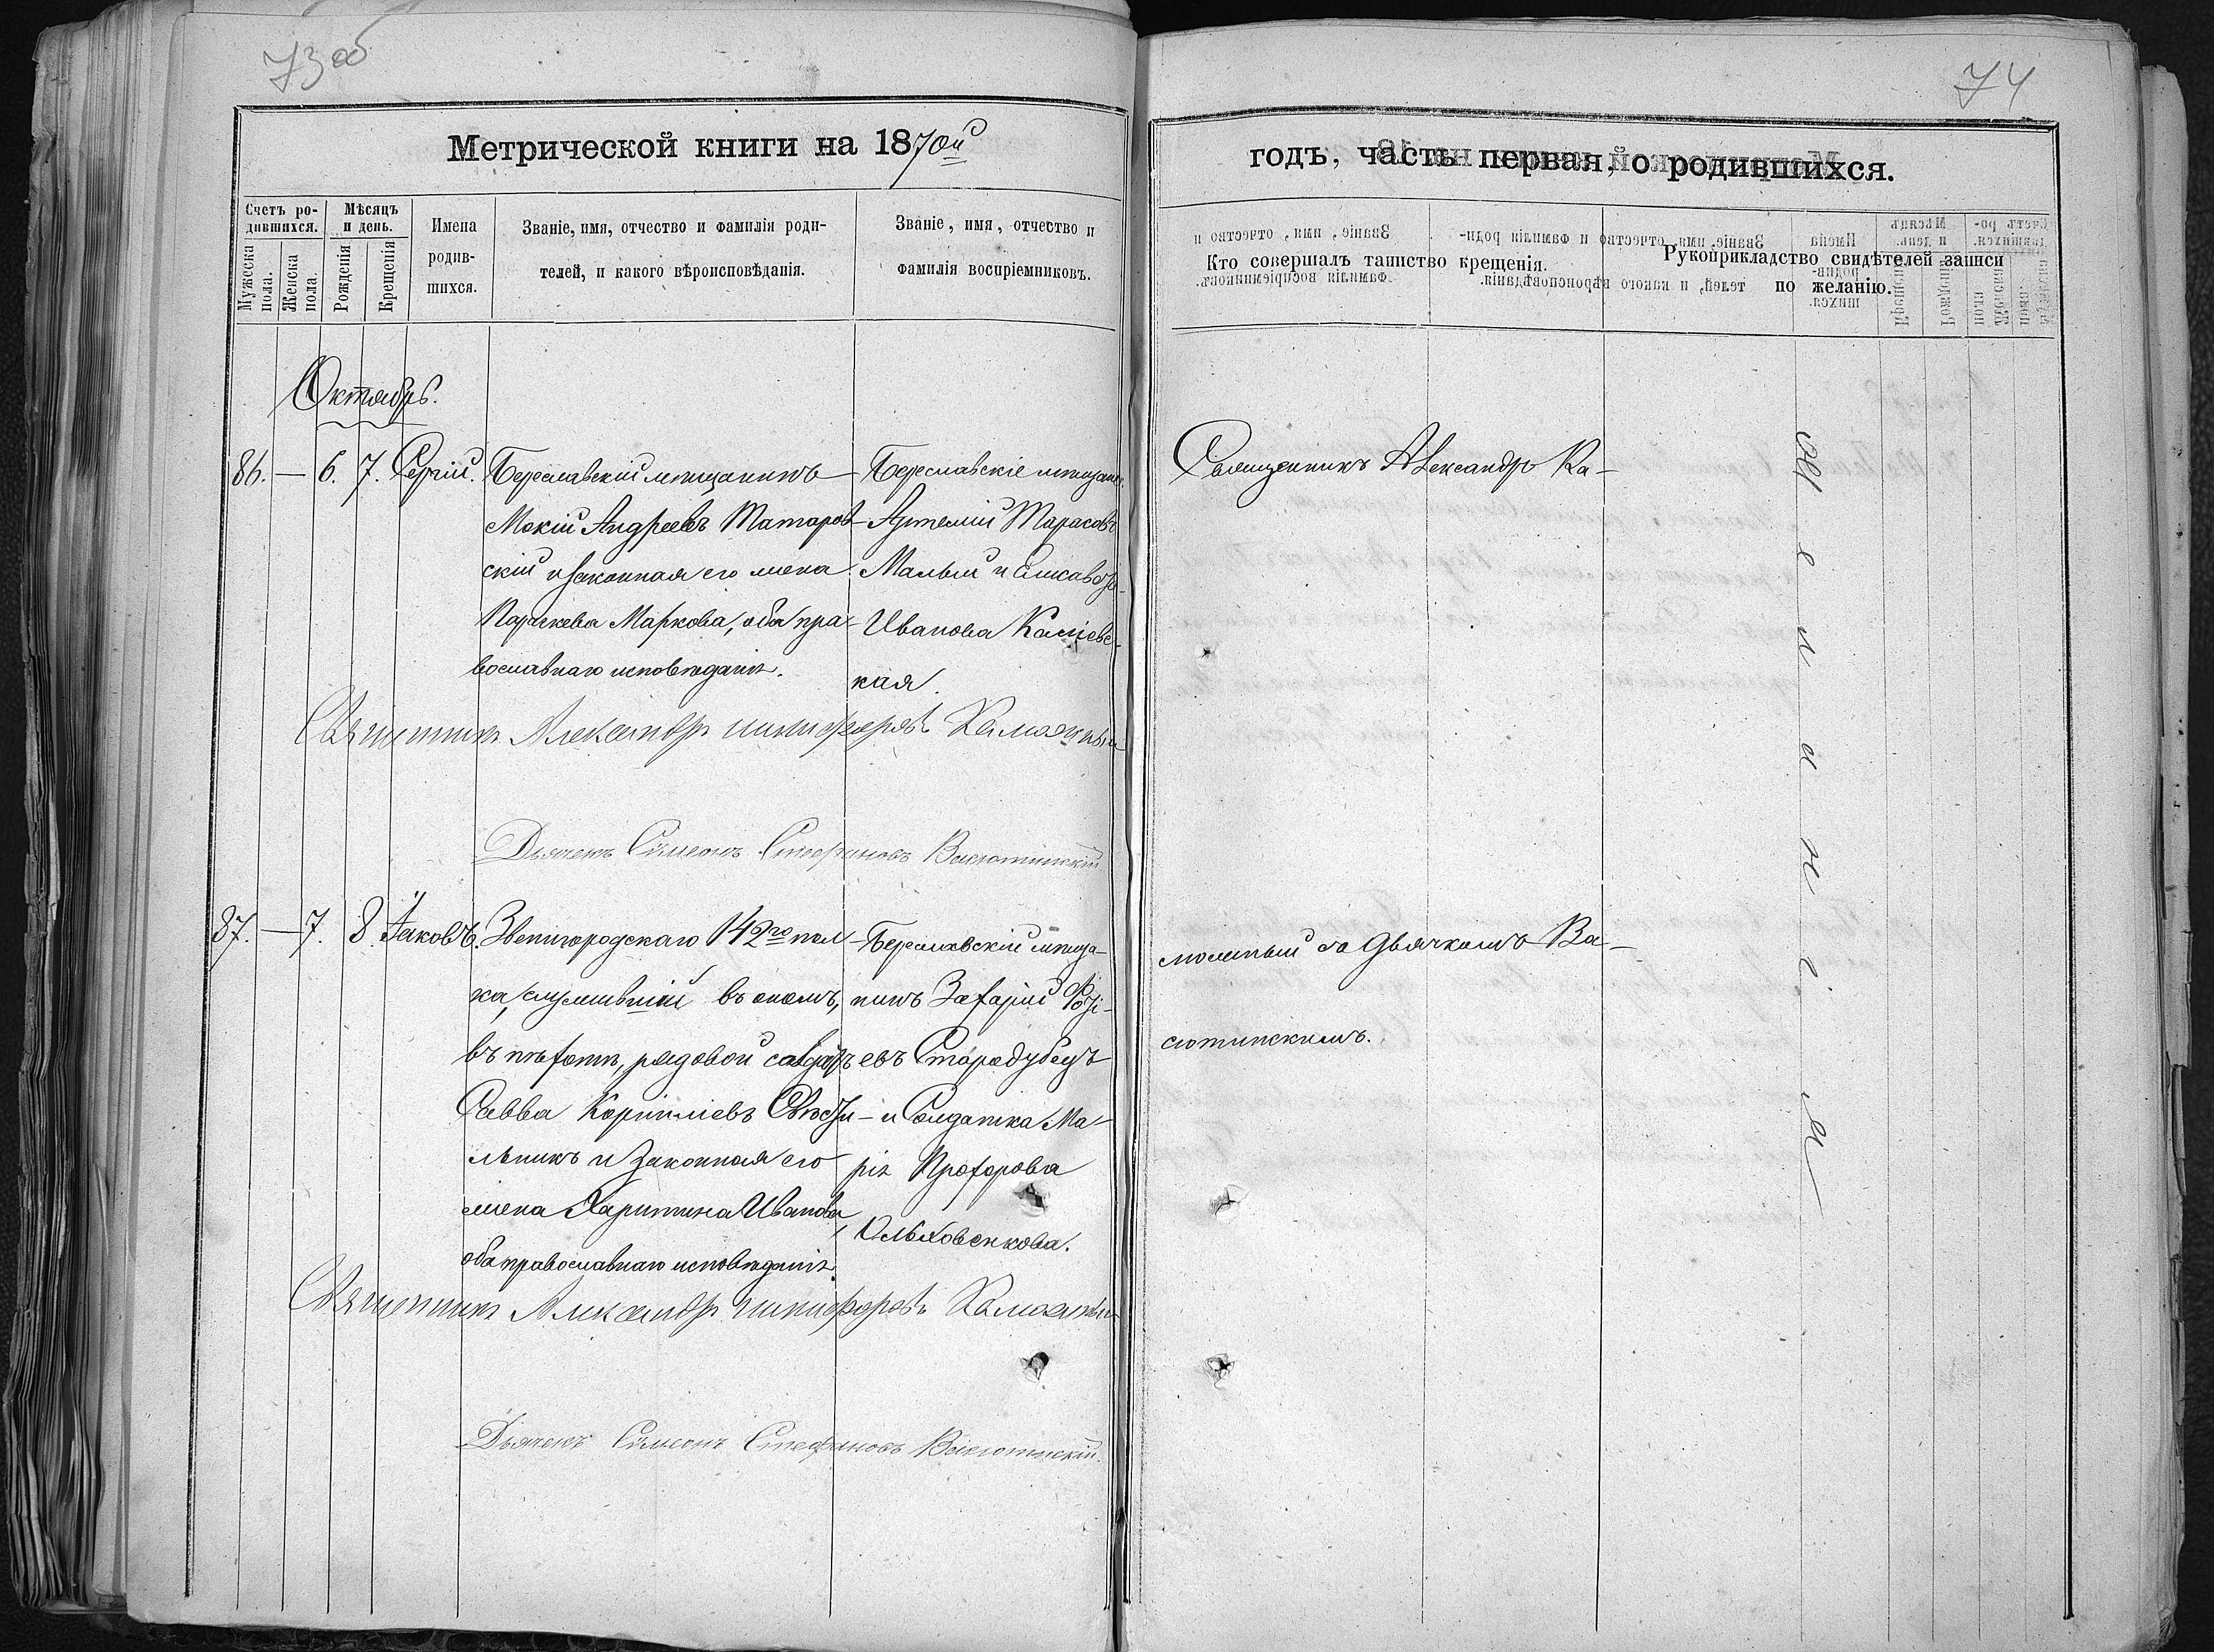 73 об
Метрической книги на 1870й
Счетъ ро-
дившихся.
Мужеска пола.
Женска пола.
Мѣсяцъ
и день.
Рожденія
Крещенія
Имена
родив-
шихся.
Званіе, имя, отчество и фамилія роди-
телей, и какого вѣроисповѣданія.
Званіе, имя, отчество и
фамилія воспріемниковъ.
Октябрь.
86. — 6. 7. Сергій.
Береславскій мѣщанинъ
Мокій Андреевъ Татаров-
скій и законная его жена
Параскева Маркова, оба пра-
вославнаго исповѣданія.
Береславскіе мѣщане
Артемій Тарасовъ
Малый и Елисавета
Иванова
кая.
Священникъ Александръ Никифоровъ
Дьячекъ Сѵмеонъ Стефановъ Васютинскій
87. — 7. 8 Іаковъ.
Звенигородскаго 142го пол-
ка, служившій въ ономъ,
въ пѣхотѣ, рядовой солдатъ
Савва Корниліевъ
льникъ и законная его
жена Харитина Иванова,
оба православнаго исповѣданія.
Береславскій мѣща-
нинъ Захарій
евъ Стародубецъ
и Солдатка Ма-
рія Прохорова
Ольховенкова.
Священникъ Александръ Никифоровъ
Дьячекъ Сѵмеонъ Стефановъ Васютинскій.
74
годъ, часть первая, о родившихся.
Кто совершалъ таинство крещенія.
Рукоприкладство свидѣтелей записи
по желанію.
Священникъ Александръ Ка-
съ дьячкомъ Ва-
сютинскимъ.